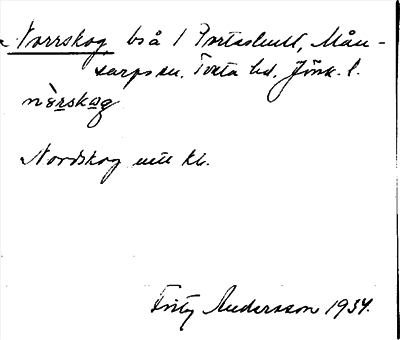 Norrskog bså 1 Portashult, Mån-
sarps sn. Tveta hd. Jönk. l.
nòrskog
Nordskog uttl kb.
Fritz Andersson 1934.